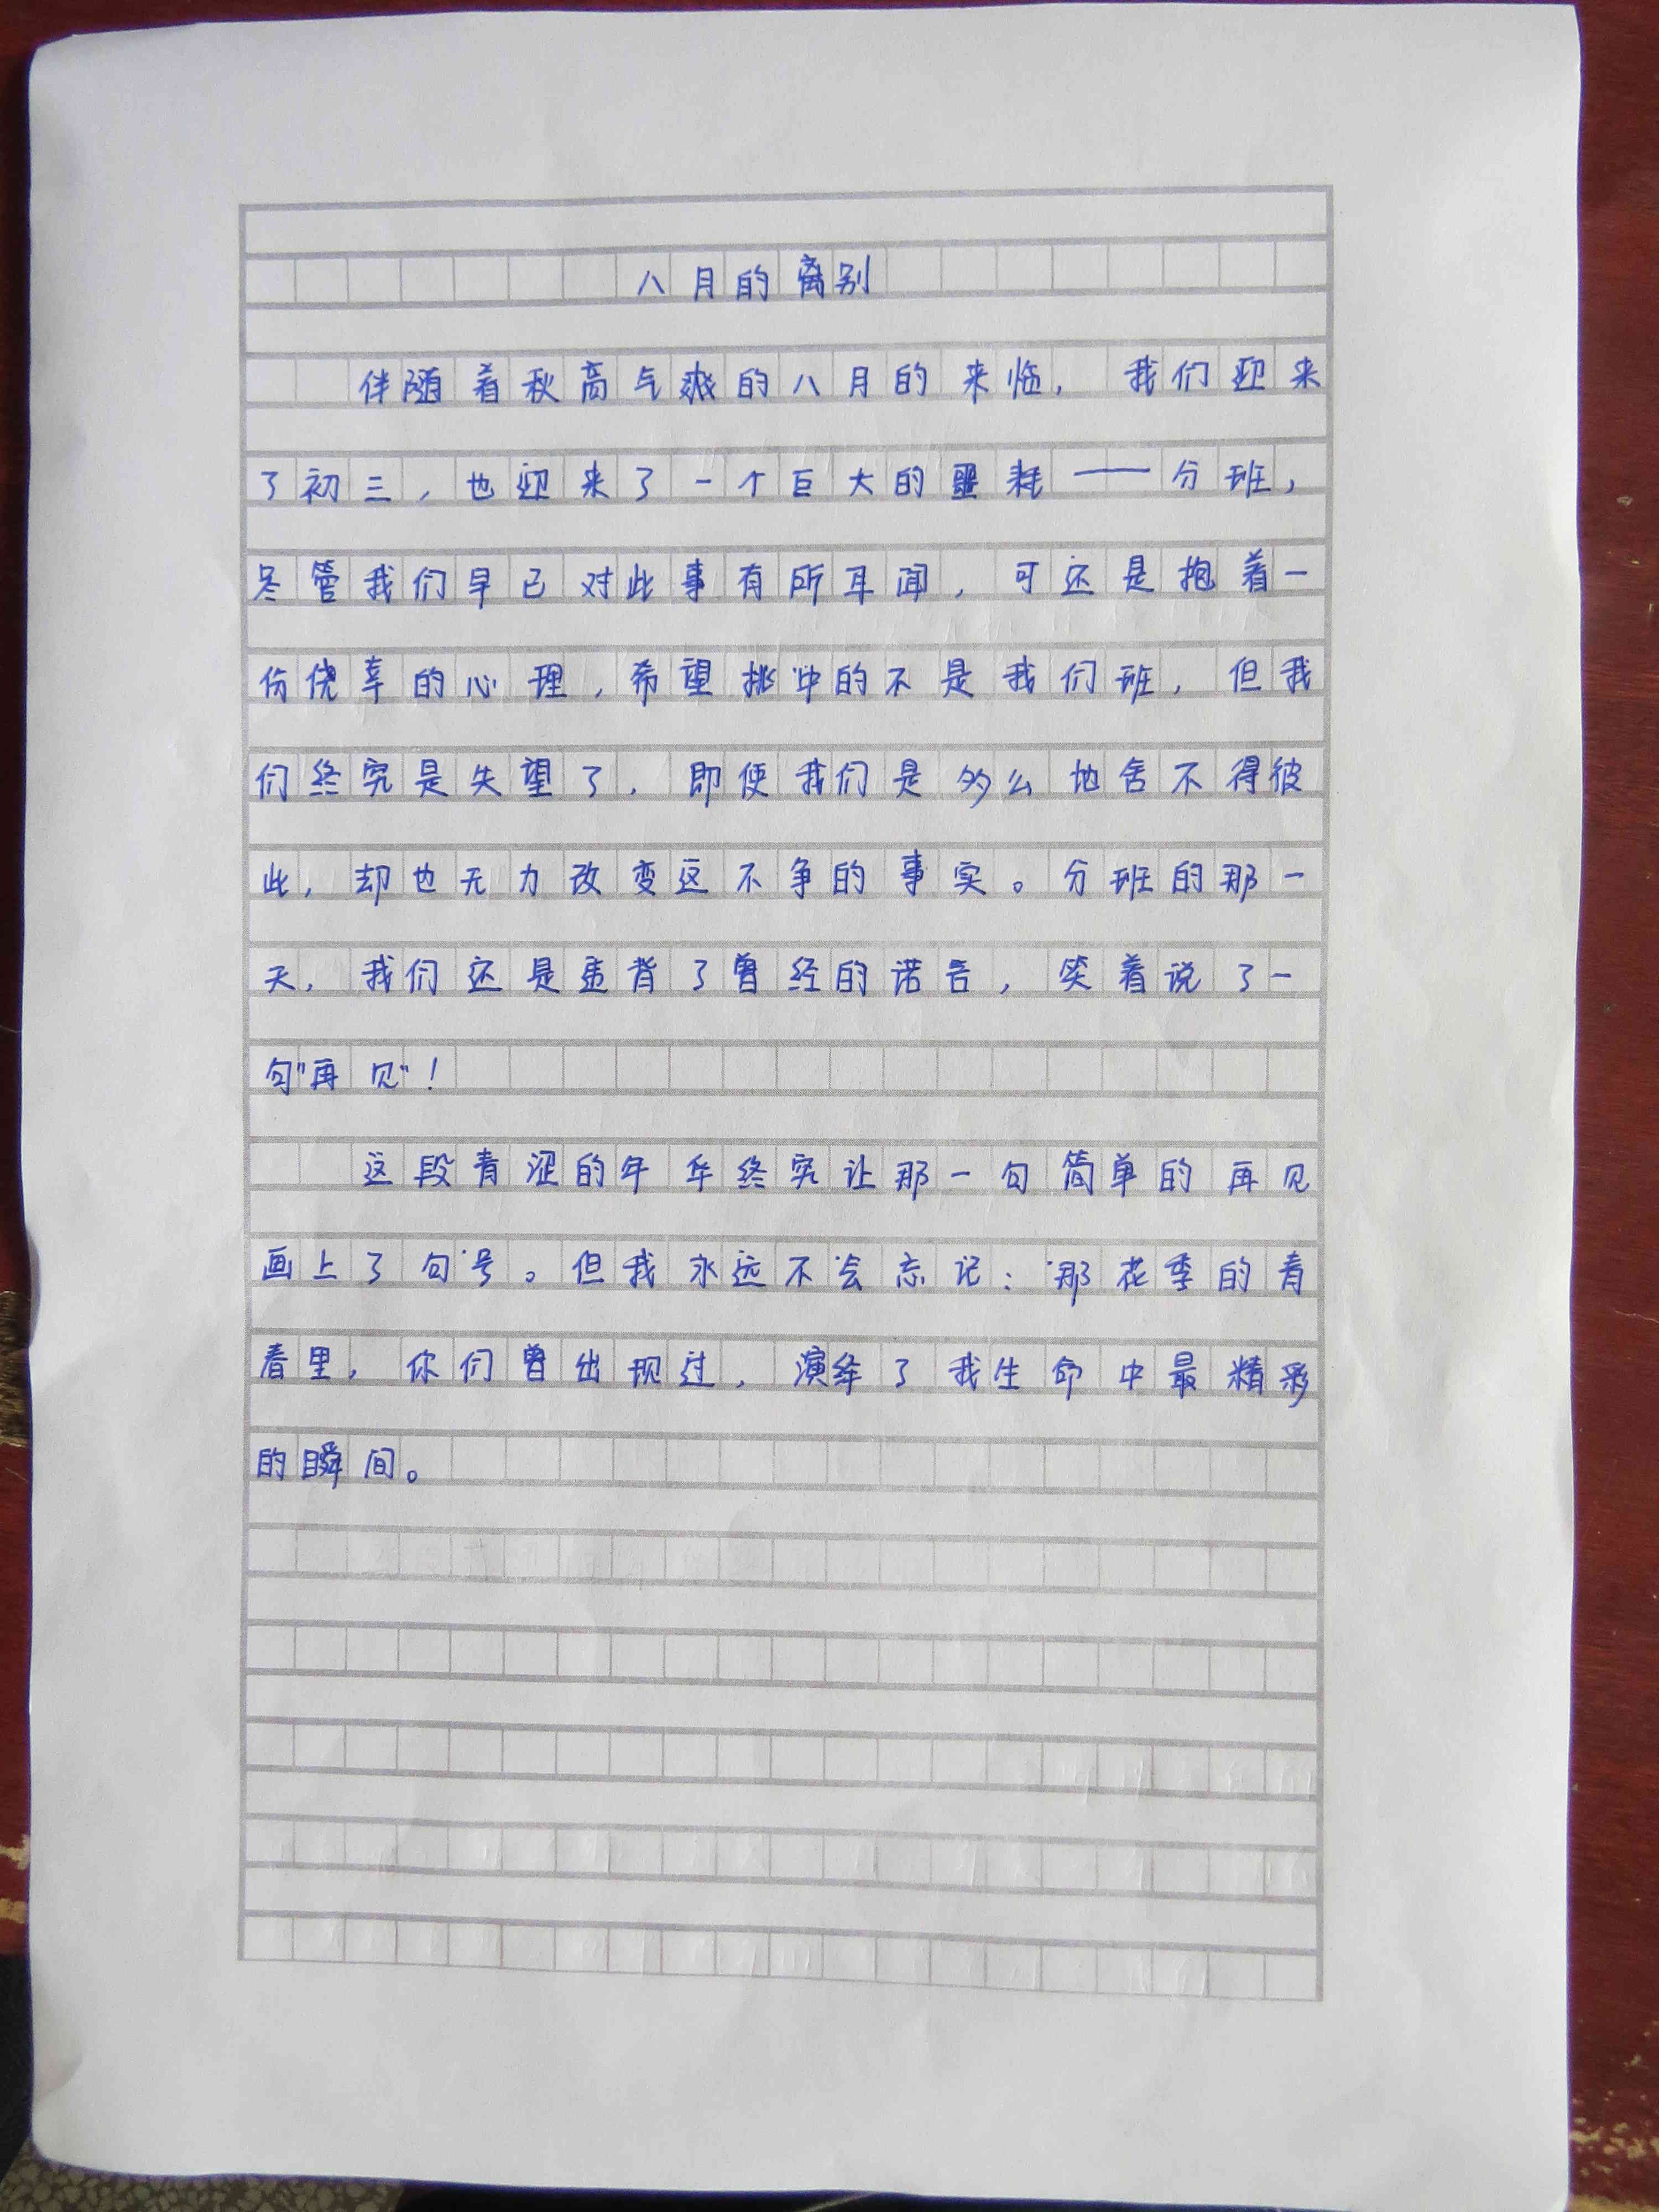 八月的离别
伴随着秋高气爽的八月的来临，我们迎来
了初三，也迎来了一个巨大的噩耗——分班，
尽管我们早已对此事有所耳闻，可还是抱着一
份侥幸的心理，希望挑中的不是我们班，但我
们终究是失望了，即便我们是多么地舍不得彼
此，却也无力改变这不争的事实。分班的那一
天，我们还是违背了曾经的诺言，笑着说了一
句"再见"！
这段青涩的年华终究让那一句简单的再见
画上了句号。但我永远不会忘记：那花季的青
春里，你们曾出现过，演绎了我生命中最精彩
的瞬间。